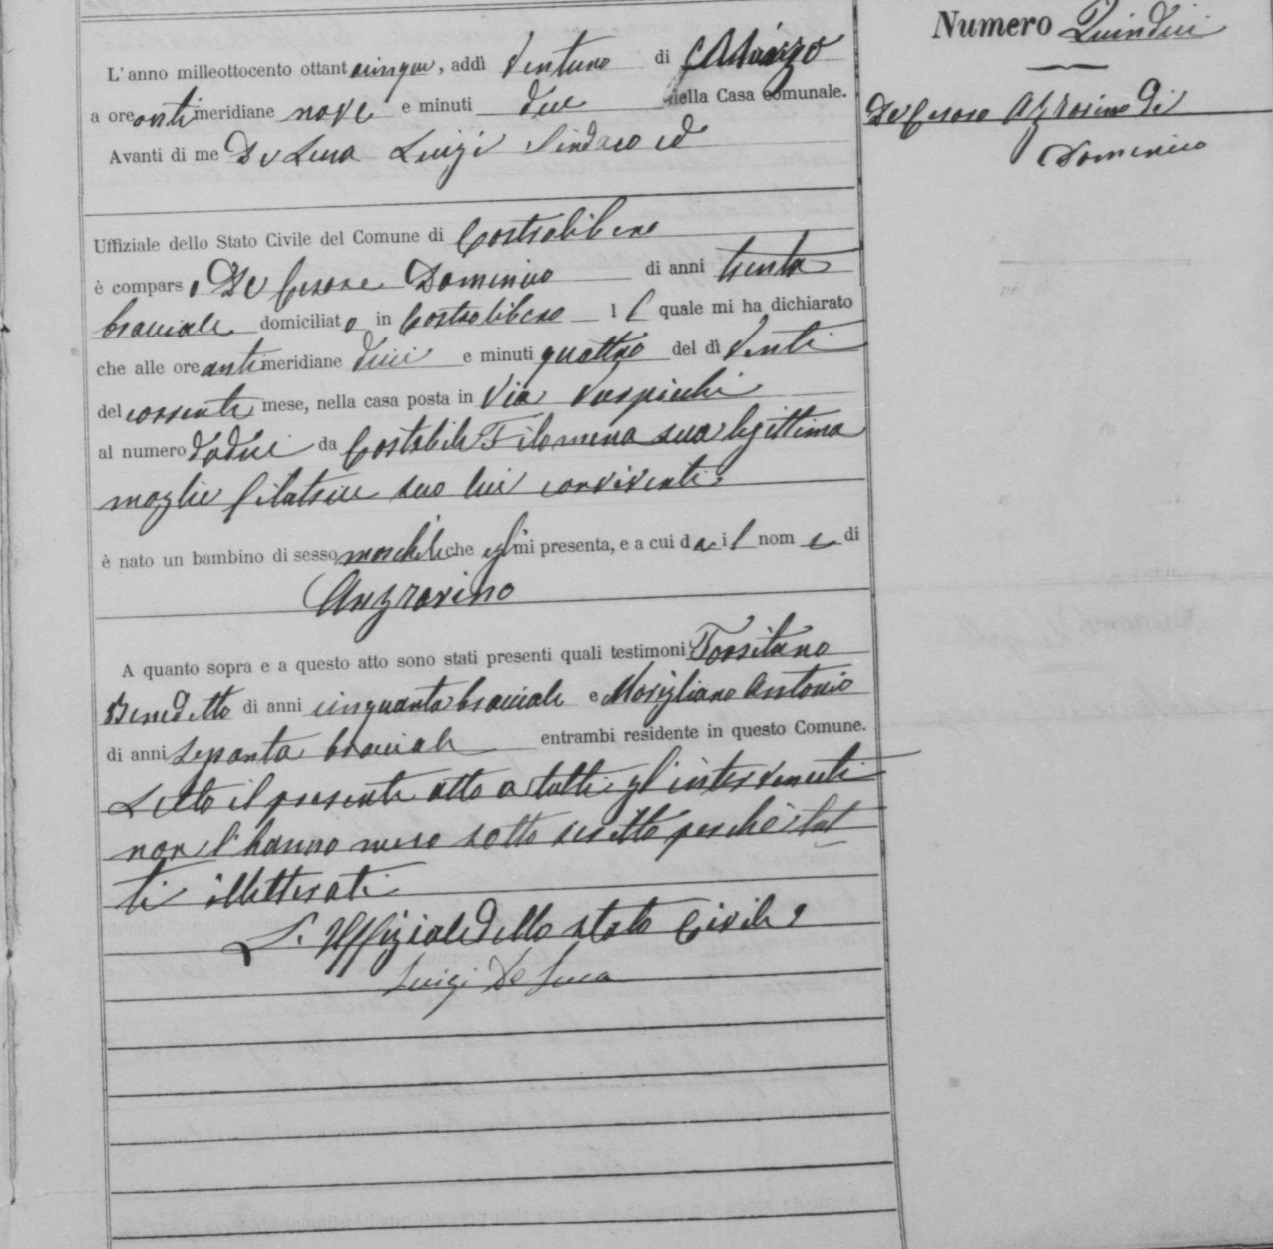 Numero Quindici
De Cesare Azzarino di
Domenico
L'anno milleottocento ottantacinque, addì Ventuno di Marzo
a ore antimeridiane nove e minuti due nella Casa comunale.
Avanti di me De Luca Luigi Sindaco ed
Uffiziale dello Stato Civile del Comune di Costrolibero
è comparso De Cesare Domenico di anni trenta
bracciale domiciliato in Costrolibero il quale mi ha dichiarato
che alle ore antimeridiane dieci e minuti quattro del dì Venti
del corrente mese, nella casa posta in Via
al numero dodici da Costabile Filomena sua legittima
moglie filatrice seco lui convivente
è nato un bambino di sesso maschile che egli mi presenta, e a cui da il nome di
Anzzarino
A quanto sopra e a questo atto sono stati presenti quali testimoni Torsitano
Benedetto di anni cinquanta bracciale e Morigliano Antonio
di anni bracciale entrambi residente in questo Comune.
Letto il presente atto a tutti gl'intervenuti
non l'hanno meco sotto scritto perchè
illetterati
L'Uffiziale dello stato Civile
Luigi De Luca